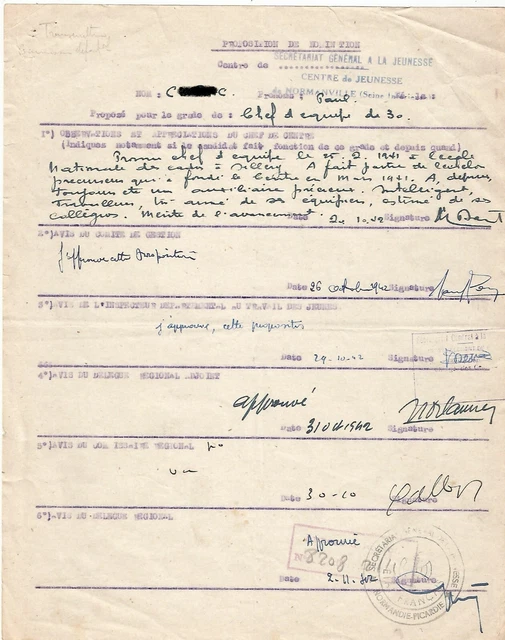 PROPOSITION DE NOMINATION
SECRÉTARIAT GÉNÉRAL A LA JEUNESSE
Centre de
CENTRE de JEUNESSE
de NORMANVILLE (Seine
NOM : C C Prénoms : Paul Né le :
Proposé pour le grade de : Chef d'équipe de 30.
1°) OBSERVATIONS ET APPRECIATIONS DU CHEF DE CENTRE
(Indiquez notamment si le candidat fait fonction de ce grade et depuis quand)
Promu chef d'équipe le 2 1941 à l'école
Nationale des cadres à Sillery. A fait partie de l'échelon
précurseur qui a fondé le Centre en Mars 1941. A, depuis,
toujours été un auxiliaire précieux. Intelligent,
travailleur, très aimé de ses équipiers, estimé de ses
collègues. Mérite de l'avancement Date 10.42 Signature
2°) AVIS DU COMITE DE GESTION
J'approuve cette proposition
Date 26 octobre 1942 Signature
3°) AVIS DE L'INSPECTEUR DEPARTEMENTAL DU TRAVAIL DES JEUNES
j'approuve, cette proposition
Date 29-10-42 Signature
4°) AVIS DU DELEGUE REGIONAL ADJOINT
approuvé
Date 31 Oct 1942 Signature
5°) AVIS DU COMMISSAIRE REGIONAL
Vu
Date 30-10 Signature
6°) AVIS DU DELEGUE REGIONAL
Approuvé
N° 8208
Date 2-11-42 Signature
SECRÉTARIAT JEUNESSE
NORMANDIE-PICARDIE